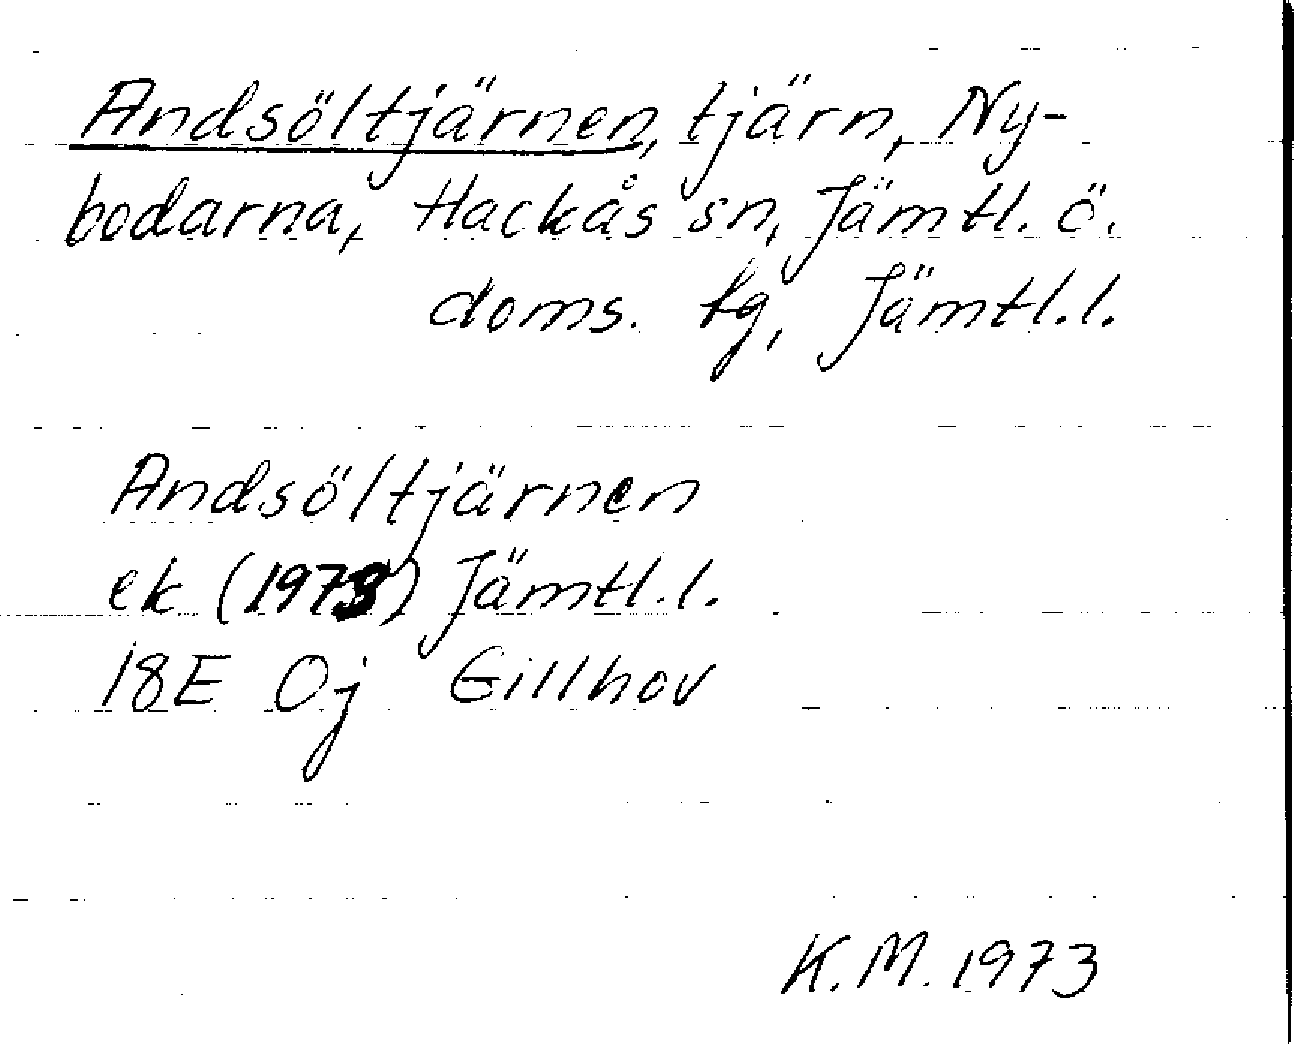 Andsöltjärnen, tjärn, Ny-
bodarna, Hackås sn, Jämtl. ö.
doms. tg, Jämtl.l.
Andsöltjärnen
ek (1973) Jämtl.l.
18E Oj Gillhov
K.M. 1973